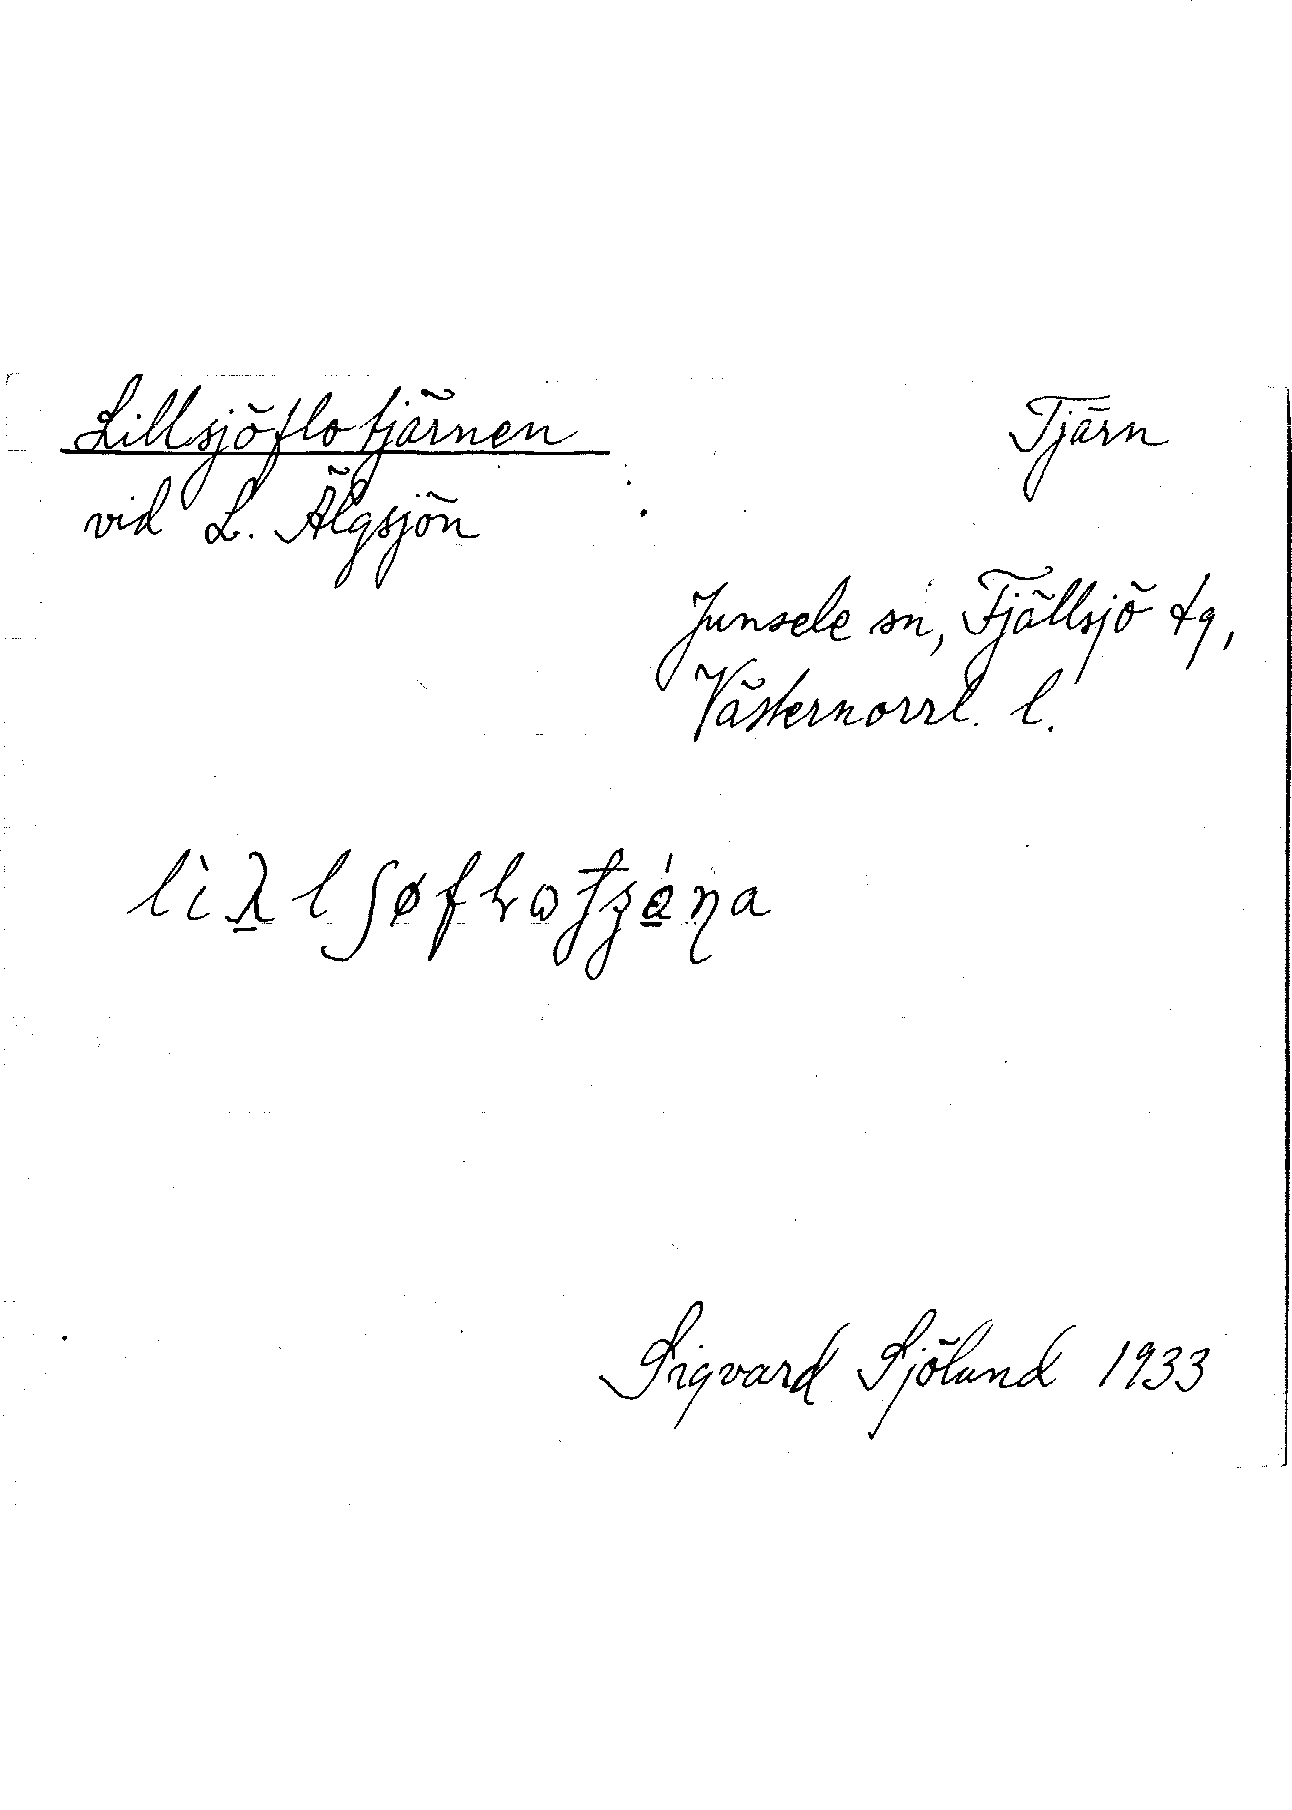 Lillsjöflotjärnen
Tjärn
vid L. Älgsjön
Junsele sn, Fjällsjö tg,
Västernorrl. l.
Sigvard Sjölund 1933